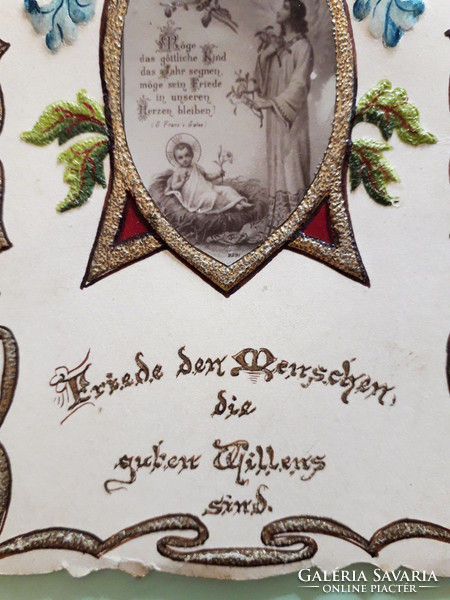 Möge
das göttliche Kind
das Jahr segnen,
möge sein Friede
in unseren
Herzen bleiben!
(S. Franz v. Sales)
Friede den Menschen,
die
guten Willens
sind.
GALÉRIA SAVARIA
ONLINE PIACTÉR